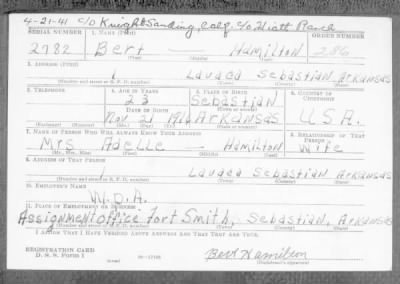 4-21-41 c/o Knights Landing, Calif. c/o Hiatt Ranch
SERIAL NUMBER 1. NAME (Print) ORDER NUMBER
2782 Bert — Hamilton 286
(First) (Middle) (Last)
2. ADDRESS (Print)
1 Lavaca Sebastian Arkansas
(Number and street or R. F. D. number) (Town) (County) (State)
3. TELEPHONE 4. AGE IN YEARS 5. PLACE OF BIRTH 6. COUNTRY OF CITIZENSHIP
23 Sebastian
DATE OF BIRTH (Town or county)
Nov. 21 1916 Arkansas U.S.A.
(Exchange) (Number) (Mo.) (Day) (Yr.) (State or country)
7. NAME OF PERSON WHO WILL ALWAYS KNOW YOUR ADDRESS 8. RELATIONSHIP OF THAT PERSON
Mrs Adelle — Hamilton Wife
(Mr., Mrs., Miss) (First) (Middle) (Last)
9. ADDRESS OF THAT PERSON
Lavaca Sebastian Arkansas
(Number and street or R. F. D. number) (Town) (County) (State)
10. EMPLOYER'S NAME
W.P.A.
11. PLACE OF EMPLOYMENT OR BUSINESS
Assignment office Fort Smith, Sebastian, Arkansas
(Number and street or R. F. D. number) (Town) (County) (State)
I AFFIRM THAT I HAVE VERIFIED ABOVE ANSWERS AND THAT THEY ARE TRUE.
REGISTRATION CARD
D. S. S. Form 1 16—17105 Bert Hamilton
(Registrant's signature)